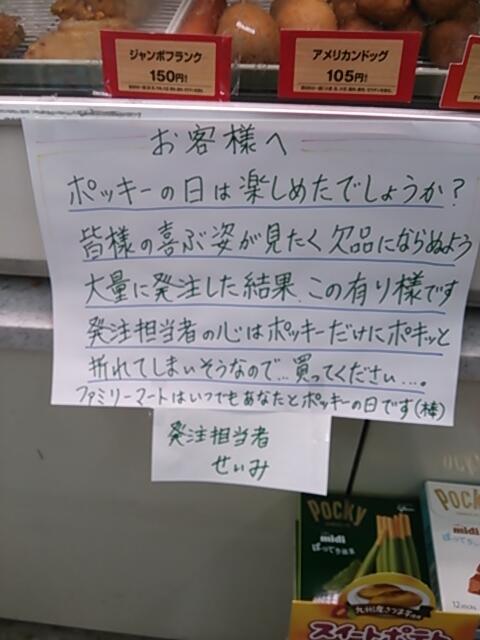 ジャンボフランク
150円!
アメリカンドッグ
105円!
お客様へ
ポッキーの日は楽しめたでしょうか?
皆様の喜ぶ姿が見たく欠品にならぬよう
大量に発注した結果、この有り様です
発注担当者の心はポッキーだけにポキッと
折れてしまいそうなので…買ってください…。
ファミリーマートはいつでもあなたとポッキーの日です(棒)
発注担当者
せいみ
POCKY
midi
Glico
POCKY
midi
九州産さつま芋使用
スイートポテト